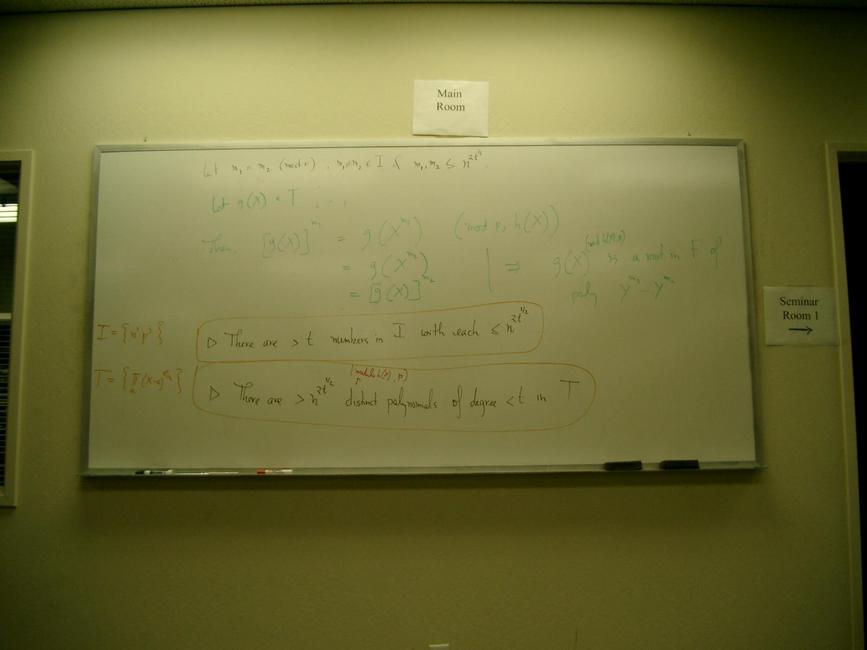 Main
Room
Let m₁ = m₂ (mod r), m₁, m₂ ∈ I & m₁, m₂ ≤ n^{2t^{1/2}}.
Let g(X) ∈ T
Then, [g(X)]^{m₁} = g(X^{m₁}) (mod p, h(X))
= g(X^{m₂})
= [g(X)]^{m₂}
⇒ g(X) is a root in F of
poly Y^{m₁} - Y^{m₂}
I = {n^i p^j}
▷ There are > t numbers in I with each ≤ n^{2t^{1/2}}
T = {∏ (X-a)}
(modulo h(x), p)
▷ There are > n^{2t^{1/2}} distinct polynomials of degree < t in T
Seminar
Room 1
→